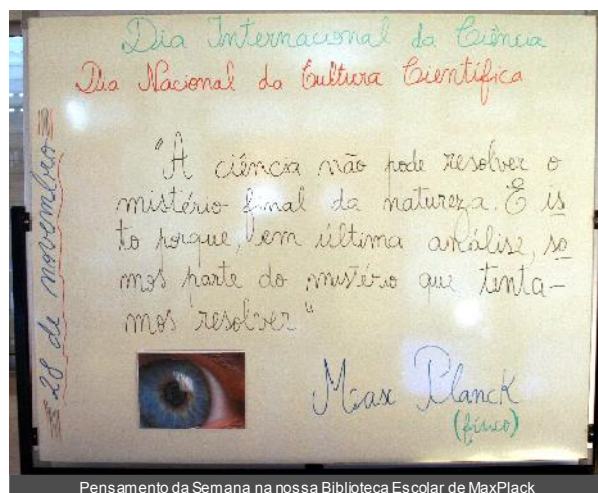 Dia Internacional da Ciência
Dia Nacional da Cultura Científica
28 de novembro
"A ciência não pode resolver o
mistério final da natureza. E is
to porque, em última análise, so
mos parte do mistério que tenta-
mos resolver"
Max Planck
(físico)
Pensamento da Semana na nossa Biblioteca Escolar de MaxPlack